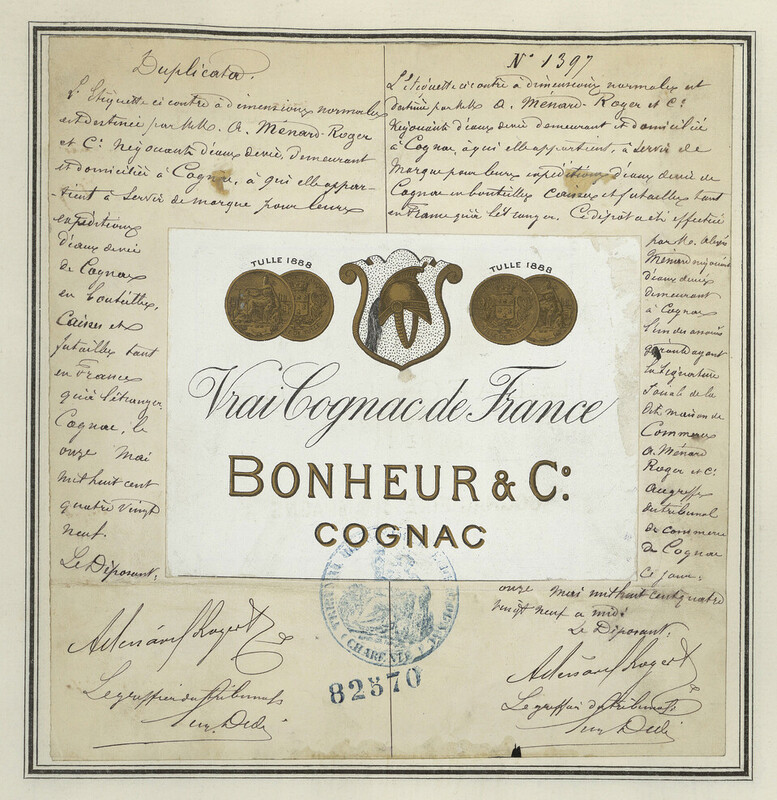 Duplicata.
L'Etiquette ci contre à dimensions normales
est destinée par MM. A. Ménard-Roger
et Cº négociants d'eaux devie, demeurant
et domiciliés à Cognac, à qui elle appar-
tient à servir de marque pour leurs
expéditions
d'eaux devie
de Cognac
en bouteilles,
Caisses et
futailles tant
en France
qu'à l'étranger.
Cognac, le
onze Mai
mil huit cent
quatre vingt
neuf.
Le Déposant:
A Ménard Roger & Cº
Le greffier du tribunal
Nº 1397
L'Etiquette ci contre à dimensions normales est
destinée par MM. A. Ménard-Roger et Cº
Négociants d'eaux devie demeurant et domiciliés
à Cognac, à qui elle appartient, à servir de
Marque pour leurs expéditions d'eaux devie de
Cognac en bouteilles caisses et futailles tant
en France qu'à l'étranger. Ce dépôt a été effectué
par M. Alexis
Ménard négociant
d'eaux devie
demeurant
à Cognac
l'un des associés
gérants ayant
la signature
sociale de la
dite maison de
Commerce
A. Ménard
Roger et Cº
au greffe
du tribunal
de commerce
de Cognac
ce jour:
onze mai mil huit cent quatre
vingt neuf à midi.
Le Déposant:
A Ménard Roger & Cº
Le greffier du tribunal
TULLE 1888
TULLE 1888
Vrai Cognac de France
BONHEUR & Cº.
COGNAC
TRIBUNAL DE COMMERCE
(CHARENTE)
82570